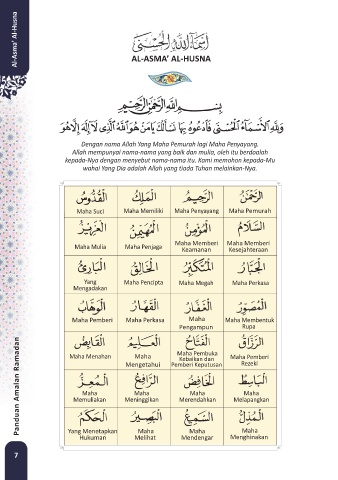 Al-Asma' Al-Husna
أسماء الله الحسنى
AL-ASMA' AL-HUSNA
بسم الله الرحمن الرحيم
Dengan nama Allah Yang Maha Pemurah lagi Maha Penyayang.
Allah mempunyai nama-nama yang baik dan mulia, oleh itu berdoalah
kepada-Nya dengan menyebut nama-nama itu. Kami memohon kepada-Mu
wahai Yang Dia adalah Allah yang tiada Tuhan melainkan-Nya.
الرَّحْمَنُ الرَّحِيمُ الْمَلِكُ الْقُدُّوسُ
Maha Suci Maha Memiliki Maha Penyayang Maha Pemurah
السَّلَامُ الْمُؤْمِنُ الْمُهَيْمِنُ الْعَزِيزُ
Maha Mulia Maha Penjaga Maha Memberi Keamanan Maha Memberi Kesejahteraan
الْجَبَّارُ الْمُتَكَبِّرُ الْخَالِقُ الْبَارِئُ
Yang Mengadakan Maha Pencipta Maha Megah Maha Perkasa
الْمُصَوِّرُ الْغَفَّارُ الْقَهَّارُ الْوَهَّابُ
Maha Pemberi Maha Perkasa Maha Pengampun Maha Membentuk Rupa
الرَّزَّاقُ الْفَتَّاحُ الْعَلِيمُ الْقَابِضُ
Maha Menahan Maha Mengetahui Maha Pembuka Kebaikan dan Pemberi Keputusan Maha Pemberi Rezeki
الْبَاسِطُ الْخَافِضُ الرَّافِعُ الْمُعِزُّ
Maha Memuliakan Maha Meninggikan Maha Merendahkan Maha Melapangkan
الْمُذِلُّ السَّمِيعُ الْبَصِيرُ الْحَكَمُ
Yang Menetapkan Hukuman Maha Melihat Maha Mendengar Maha Menghinakan
Panduan Amalan Ramadan
7